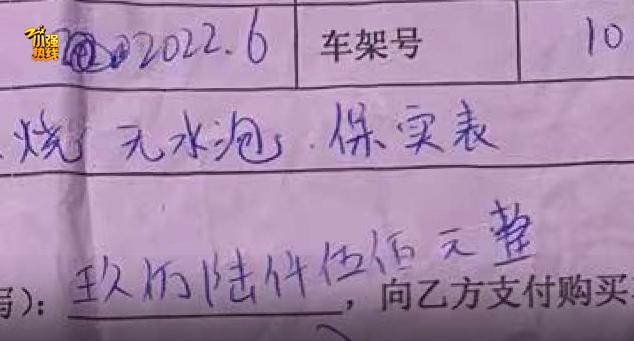 小强热线
2022.6 车架号 10
烧 无水泡, 保实表
写): 玖仟陆仟伍佰元整, 向乙方支付购买